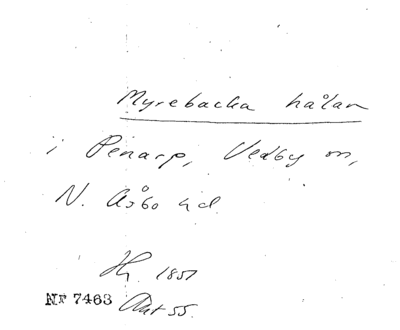 Myrebacka hålan
i Penarp, Vedby sn,
N. Åsbo hd
Hy. 1857
Nr 7463 Ant 55.